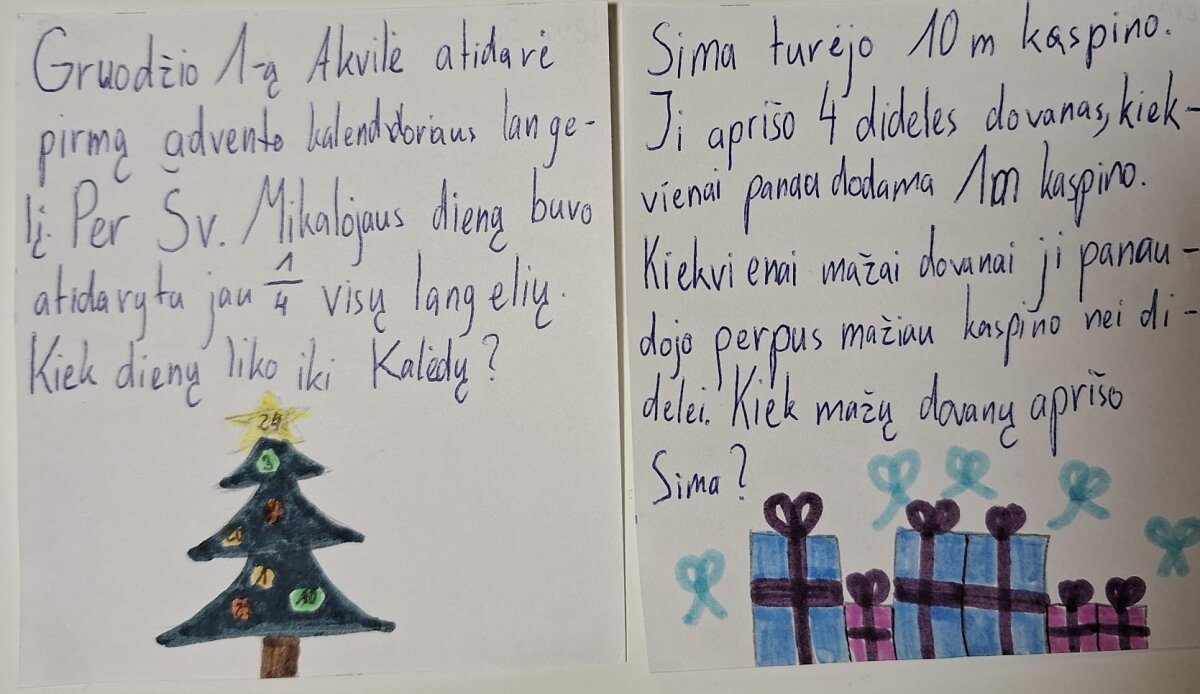 Gruodžio 1-ą Akvilė atidarė
pirmą advento kalendoriaus lange-
lį. Per Šv. Mikalojaus dieną buvo
atidaryta jau 1/4 visų langelių.
Kiek dienų liko iki Kalėdų?
24
3
1
10
Sima turėjo 10 m kaspino.
Ji aprišo 4 dideles dovanas, kiek-
vienai panaudodama 1m kaspino.
Kiekvienai mažai dovanai ji panau-
dojo perpus mažiau kaspino nei di-
delei. Kiek mažų dovanų aprišo
Sima?